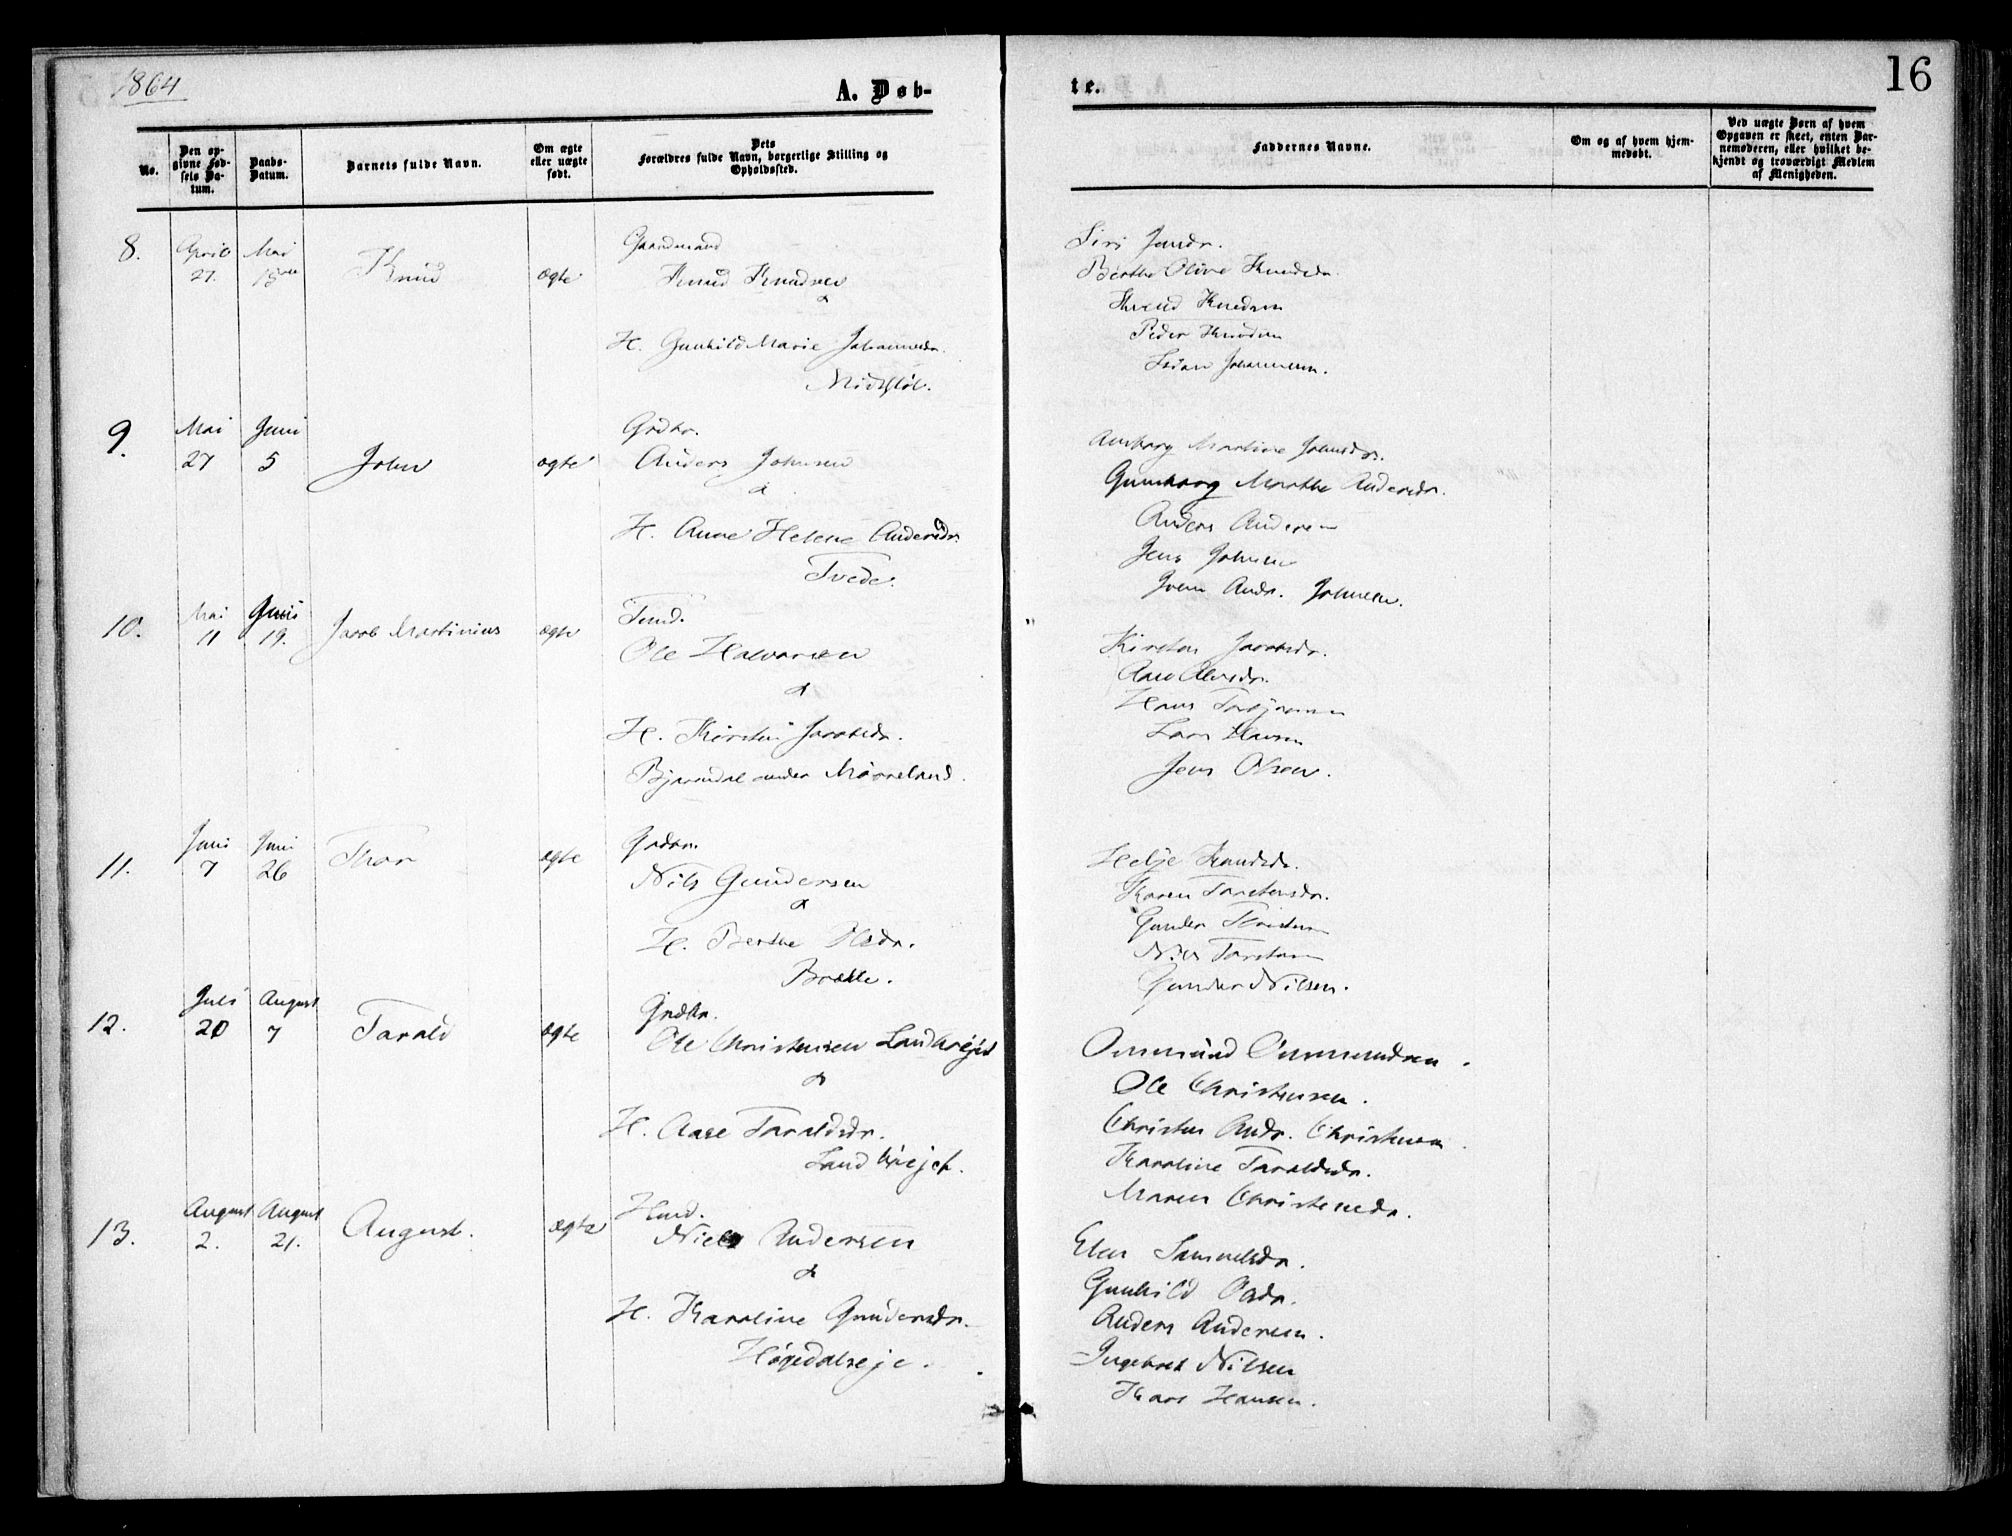 1864
A. Døb-
te.
16
No.
Den op-
givne Fød-
sels Da-
tum.
Daabs-
Datum.
Barnets fulde Navn.
Om ægte
eller uægte
født.
Dets
Forældres fulde Navn, borgerlige Stilling og
Opholdssted.
Faddernes Navne.
Om og af hvem hjem-
medøbt.
Ved uægte Børn af hvem
Opgaven er skeet, enten Bar-
nemoderen, eller hvilket be-
kjendt og troværdigt Medlem
af Menigheden.
8.
April
27.
Mai
15
Knud
ægte
Gaardmand
Knud Knudsen
&
H. Gunhild Marie Johannesdr.
Siri Jensdr.
Berthe Oline Knudsdr.
Knudsen
Peder Knudsen
Johannesen.
9.
Mai
27
Juni
5
John
ægte
Grdbr.
Anders Johnsen
&
H. Anne Helene Andersdr.
Tvede.
Martine Johnsdr.
Gunborg Marthe Andersdr.
Anders Andersen
Jens Johnsen
Andr. Johnsen.
10.
Mai
11
Juni
19.
Jacob Martinius
ægte
Ole Halvorsen
&
H. Kirsten Jacobsdr.
under
Kirsten Jacobsdr.
Olsdr.
Hans
Lars Hansen
Jens Olsen.
11.
Juni
7
Juni
26
Thor
ægte
Grdbr.
Nils Gundersen
&
H. Berthe Olsdr.
Helje Knudsdr.
Karen Torstensdr.
Gunder
Nils
Gunder Nilsen.
12.
Juli
20
August
7
Tarald
ægte
Grdbr.
Ole Christensen
&
H. Aase Taraldsdr.
Ommund Ommundsen.
Ole Christensen.
Christen Andr. Christensen.
Karoline Taraldsdr.
Maren Christensdr.
13.
August
2.
August
21.
August.
ægte
Niels Andersen
&
H. Karoline Gundersdr.
Høgedalseje.
Elen Samuelsdr.
Gunhild Olsdr.
Anders Andersen.
Ingebret Nilsen
Hansen.